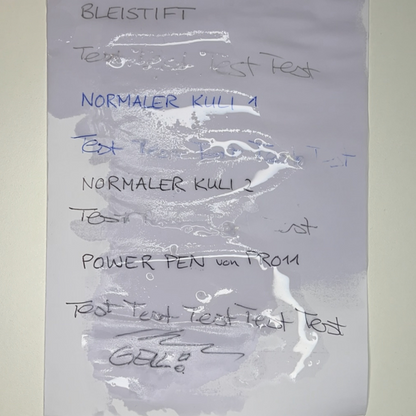 BLEISTIFT
Test Test Test Test
NORMALER KULI 1
Test Test Test
NORMALER KULI 2
POWER PEN von TRO11
Test Test Test Test Test
GEIL!